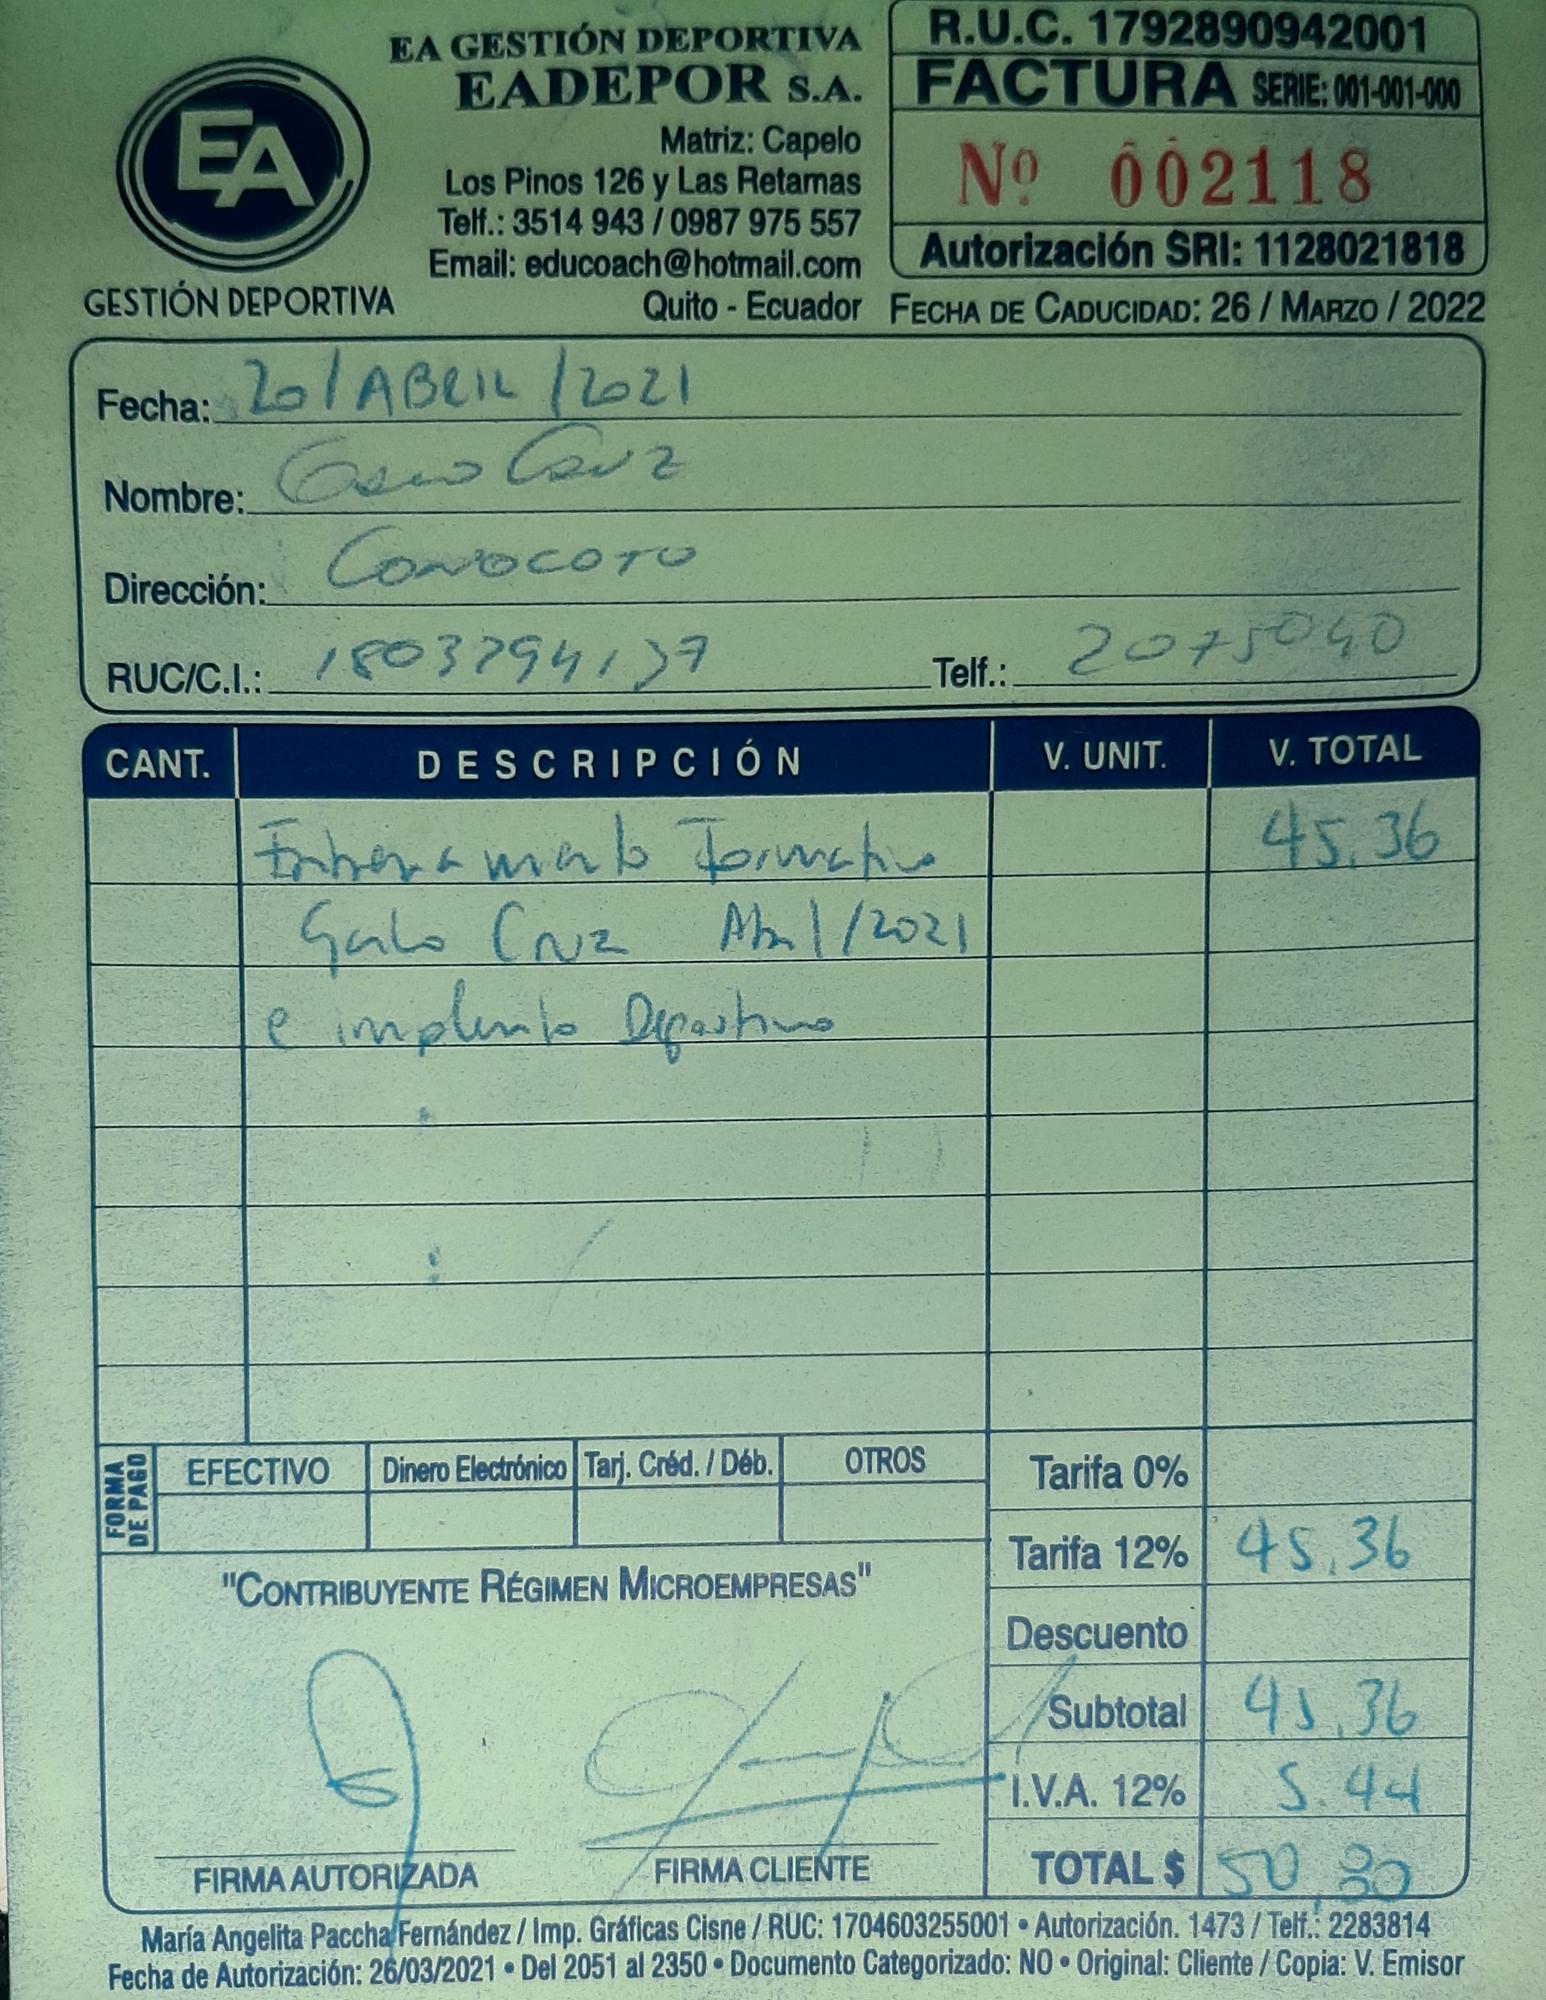 EA
GESTIÓN DEPORTIVA
EA GESTIÓN DEPORTIVA
EADEPOR S.A.
Matriz: Capelo
Los Pinos 126 y Las Retamas
Telf.: 3514 943 / 0987 975 557
Email: educoach@hotmail.com
Quito - Ecuador
R.U.C. 1792890942001
FACTURA SERIE: 001-001-000
Nº 002118
Autorización SRI: 1128021818
FECHA DE CADUCIDAD: 26 / MARZO / 2022
Fecha: 20/ABRIL/2021
Nombre: Cruz
Dirección: CONOCOTO
RUC/C.I.: 1803794137 Telf.: 2075040
CANT. DESCRIPCIÓN V. UNIT. V. TOTAL
Entrenamiento Formativo 45.36
Galo Cruz Abril/2021
e implemento Deportivo
FORMA DE PAGO EFECTIVO Dinero Electrónico Tarj. Créd. / Déb. OTROS
Tarifa 0%
Tarifa 12% 45.36
"CONTRIBUYENTE RÉGIMEN MICROEMPRESAS"
Descuento
Subtotal 45.36
I.V.A. 12% 5.44
TOTAL $ 50.80
FIRMA AUTORIZADA FIRMA CLIENTE
María Angelita Paccha Fernández / Imp. Gráficas Cisne / RUC: 1704603255001 • Autorización. 1473 / Telf.: 2283814
Fecha de Autorización: 26/03/2021 • Del 2051 al 2350 • Documento Categorizado: NO • Original: Cliente / Copia: V. Emisor